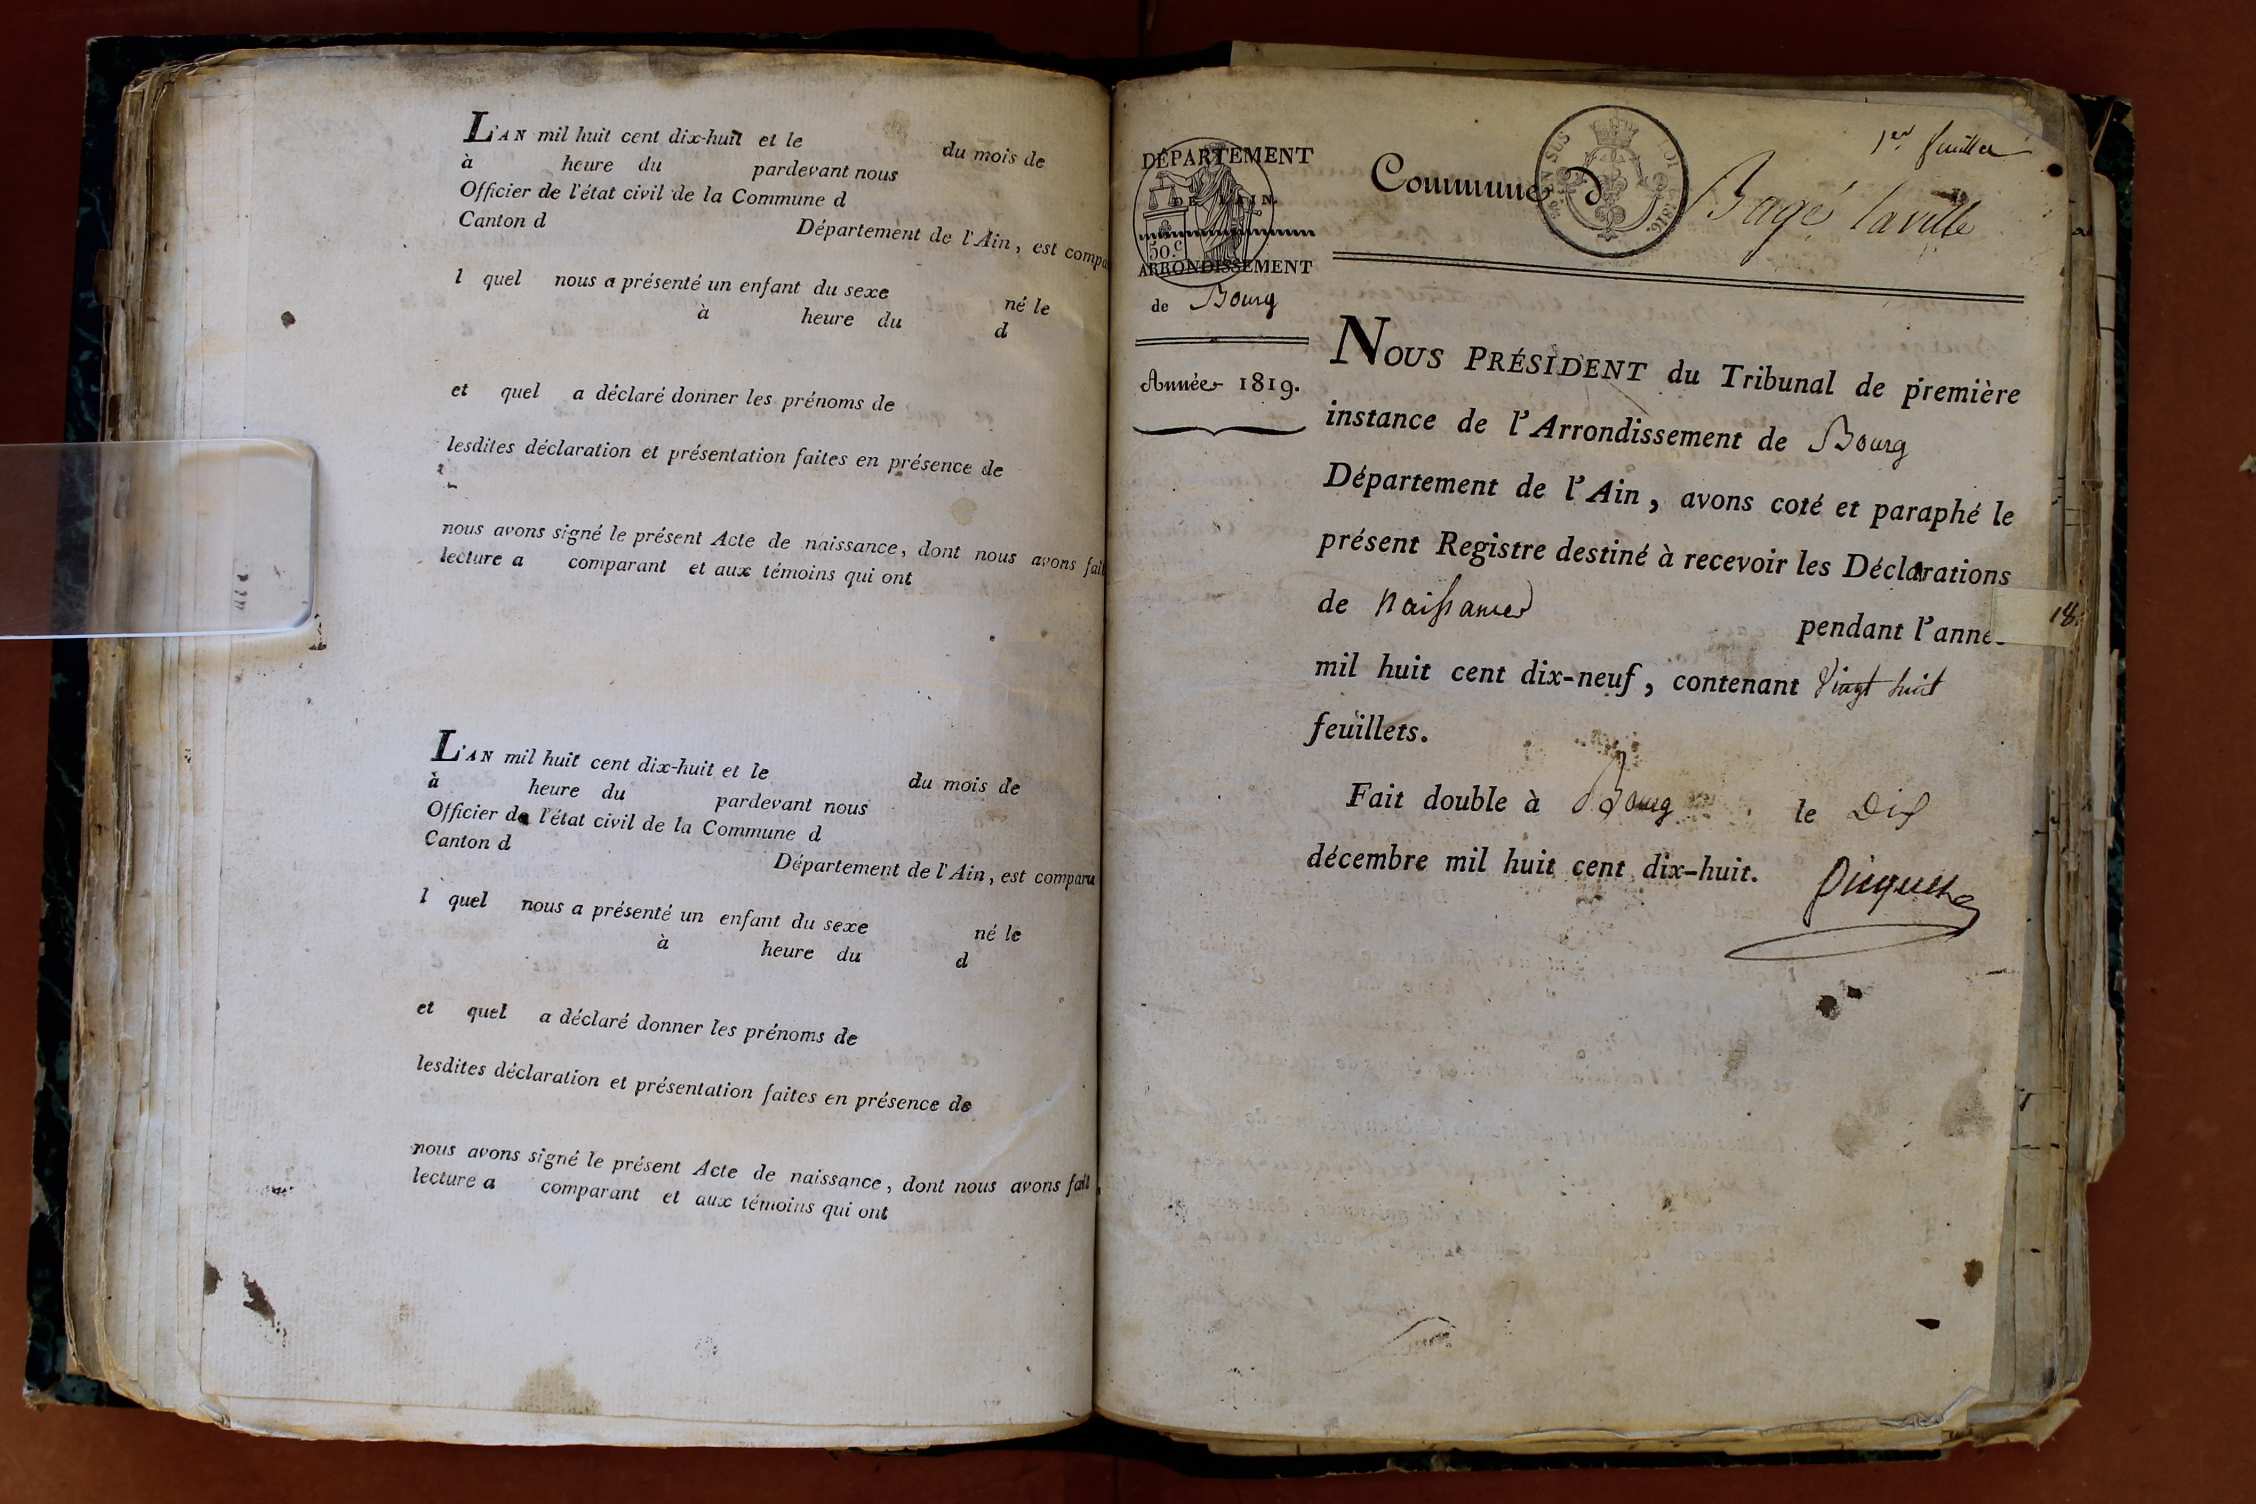 L'AN mil huit cent dix-huit et le du mois de
à heure du pardevant nous
Officier de l'état civil de la Commune d
Canton d Département de l'Ain, est compa
l quel nous a présenté un enfant du sexe né le
à heure du d
et quel a déclaré donner les prénoms de
lesdites déclaration et présentation faites en présence de
nous avons signé le présent Acte de naissance, dont nous avons fait
lecture a comparant et aux témoins qui ont
L'AN mil huit cent dix-huit et le du mois de
à heure du pardevant nous
Officier de l'état civil de la Commune d
Canton d Département de l'Ain, est comparu
l quel nous a présenté un enfant du sexe né le
à heure du d
et quel a déclaré donner les prénoms de
lesdites déclaration et présentation faites en présence de
nous avons signé le présent Acte de naissance, dont nous avons fait
lecture a comparant et aux témoins qui ont
1er feuillet
DÉPARTEMENT
DE L'AIN.
50.c
ARRONDISSEMENT
de Bourg
Année 1819.
EN SUS
LOI DE 1816.
Commune d Bagé la ville
NOUS PRÉSIDENT du Tribunal de première
instance de l'Arrondissement de Bourg
Département de l'Ain, avons coté et paraphé le
présent Registre destiné à recevoir les Déclarations
de Naissances pendant l'anné
mil huit cent dix-neuf, contenant Vingt huit
feuillets.
Fait double à Bourg le Dix
décembre mil huit cent dix-huit.
18